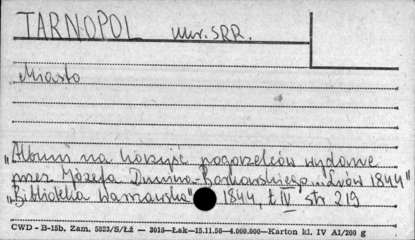 TARNOPOL ukr. SRR.
Miasto
„Album na korzyść pogorzelców wydane
przez Józefa Dunina-Borkowskiego... Lwów 1844"
„Biblioteka Warszawska" 1844, t. IV str 219
CWD - B-15b. Zam. 5323/S/ŁŻ — 3016—Łak—15.11.56—4.000.000—Karton kl. IV A1/200 g